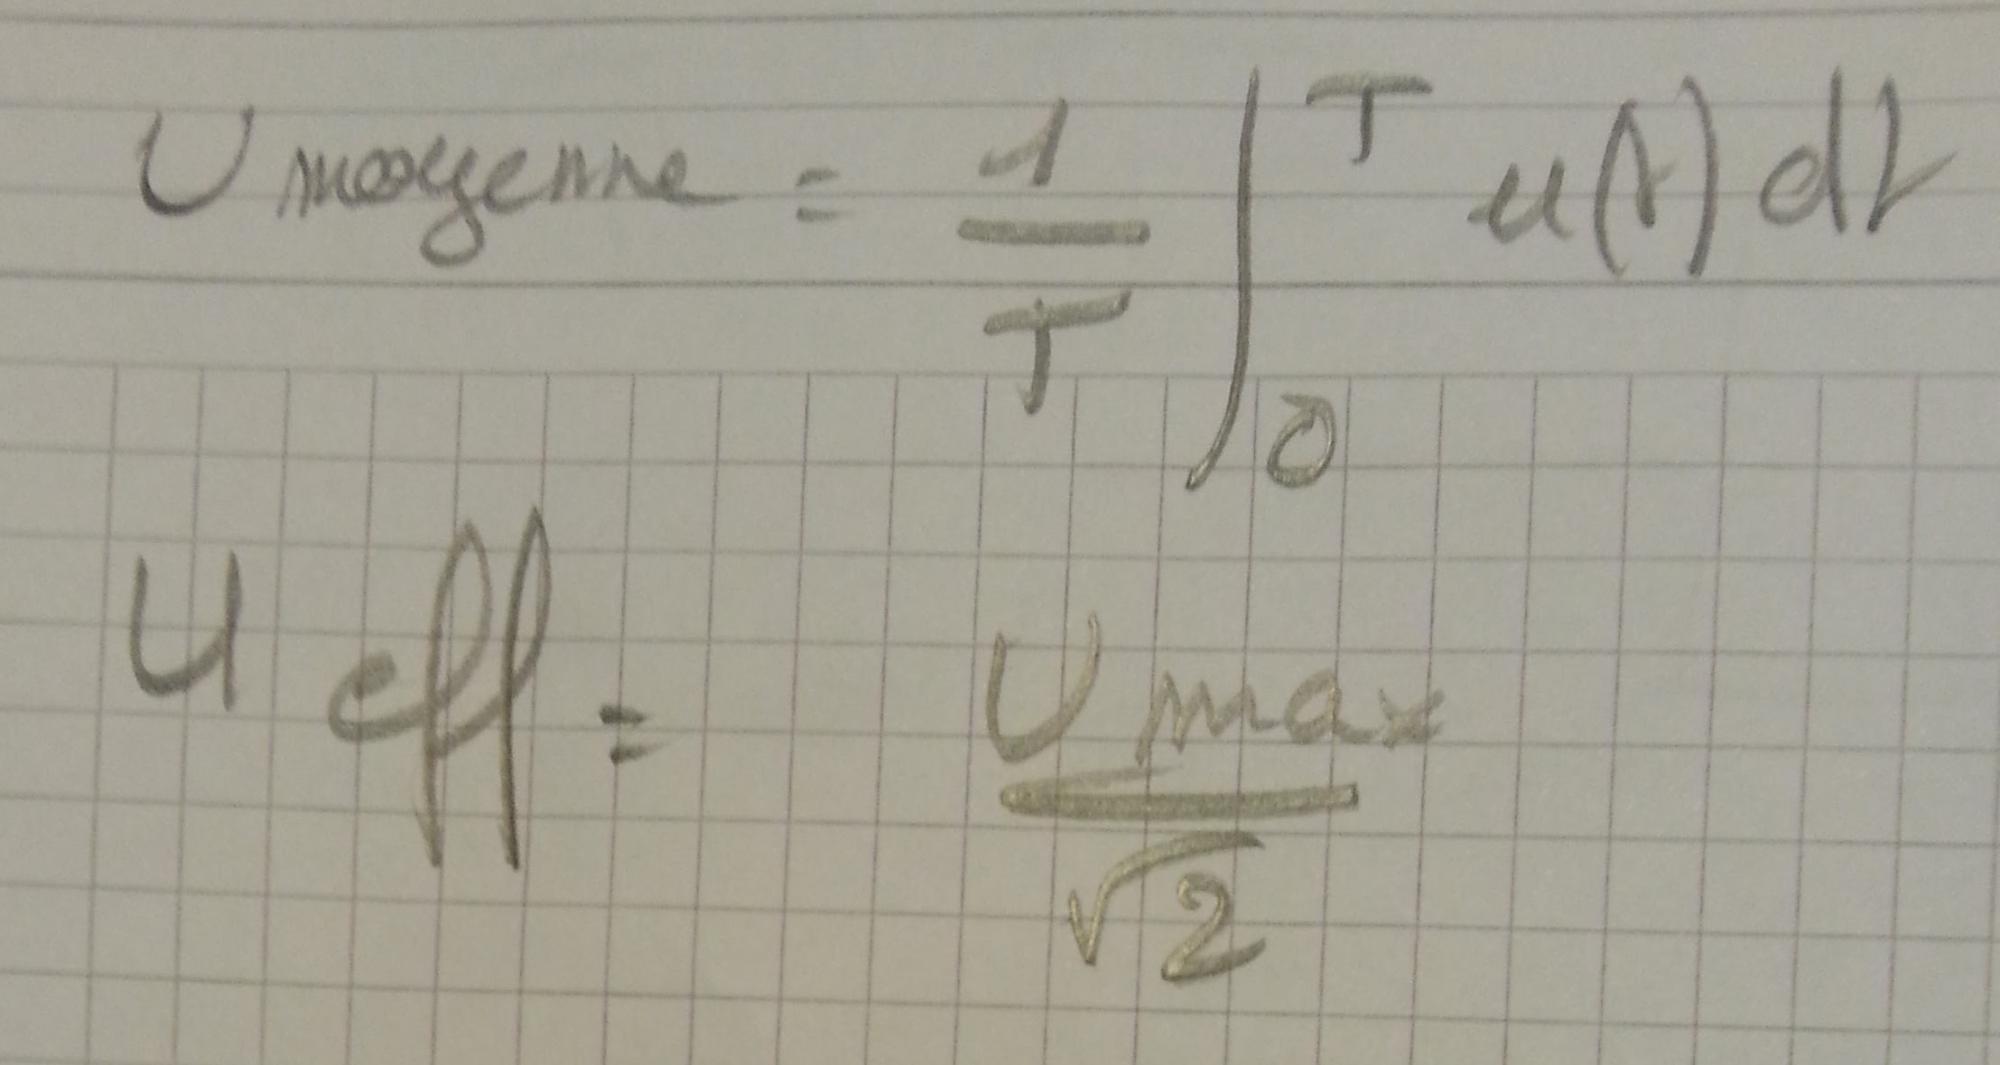 U moyenne = 1/T ∫₀ᵀ u(t) dt
U eff = U max / √2